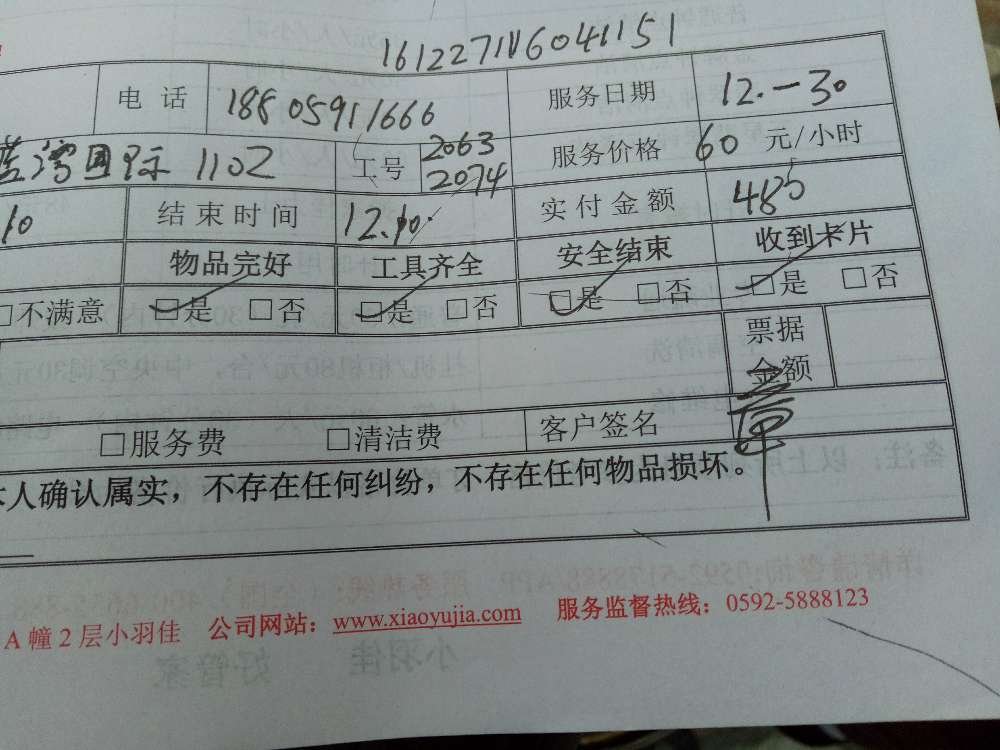 1612271V6041151
电话 18805911666 服务日期 12.-30
蓝湾国际 1102 工号 2063 2074 服务价格 60 元/小时
10 结束时间 12.10 实付金额 485
物品完好 工具齐全 安全结束 收到卡片
□不满意 □是 □否 □是 □否 □是 □否 □是 □否
票据金额
□服务费 □清洁费 客户签名
本人确认属实，不存在任何纠纷，不存在任何物品损坏。
A幢2层小羽佳 公司网站：www.xiaoyujia.com 服务监督热线：0592-5888123